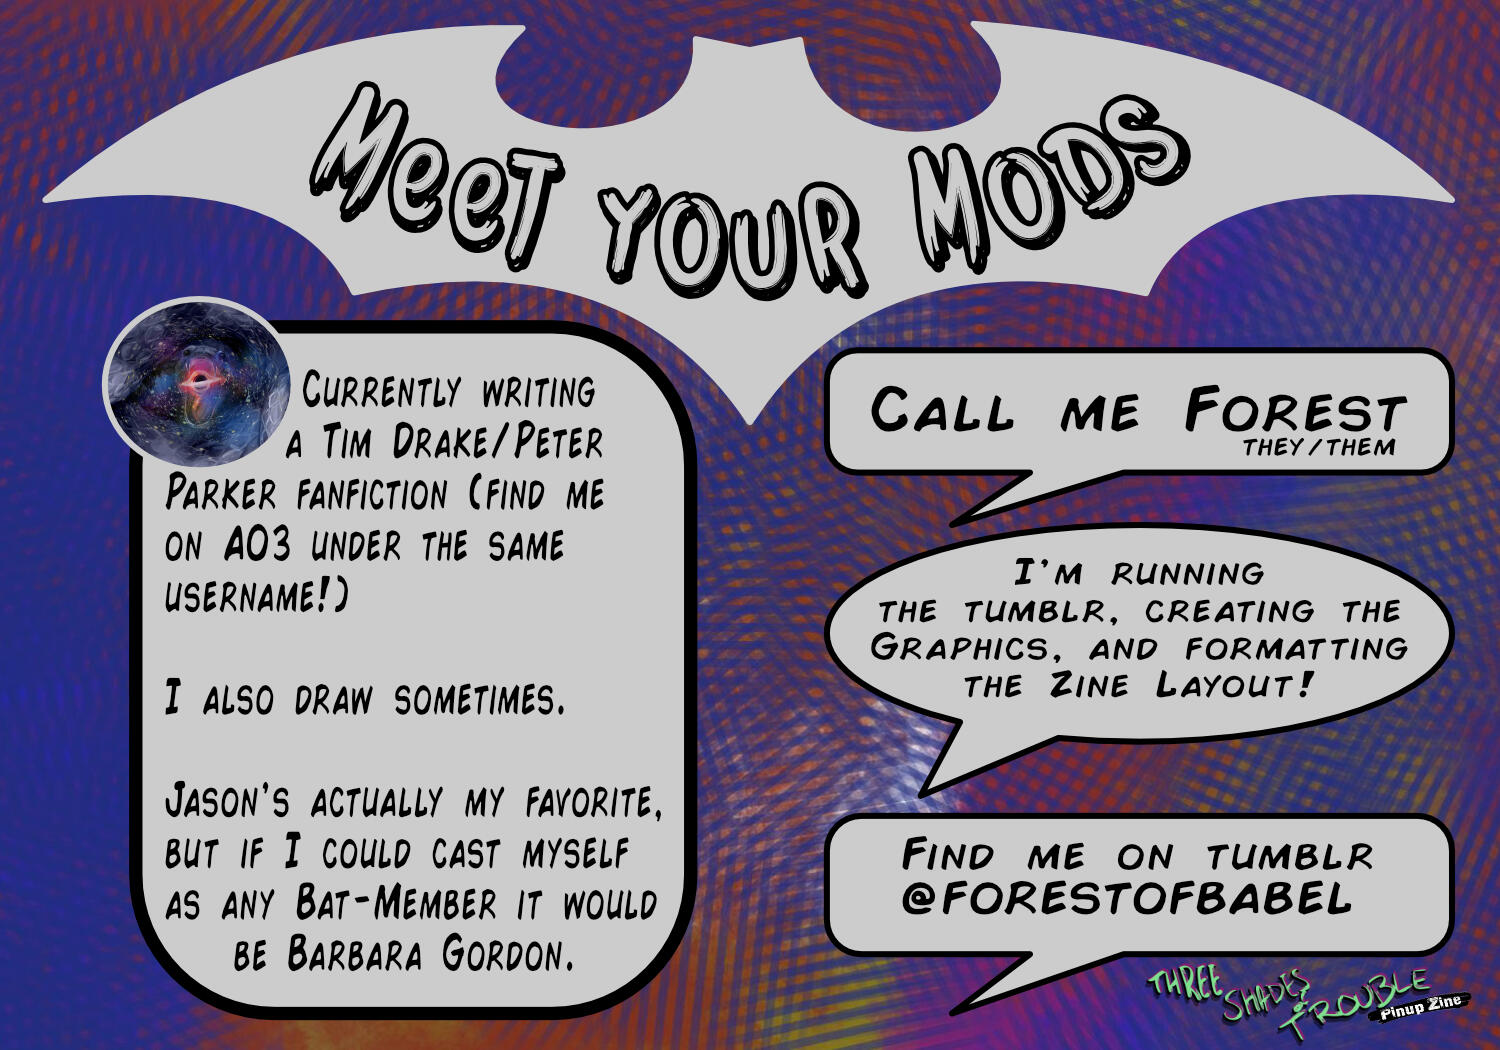 Meet your Mods
Currently writing
a Tim Drake/Peter
Parker fanfiction (find me
on AO3 under the same
username!)
I also draw sometimes.
Jason's actually my favorite,
but if I could cast myself
as any Bat-Member it would
be Barbara Gordon.
Call me Forest
they/them
I'm running
the tumblr, creating the
Graphics, and formatting
the Zine Layout!
Find me on tumblr
@forestofbabel
Three
Shades &
Trouble
Pinup Zine